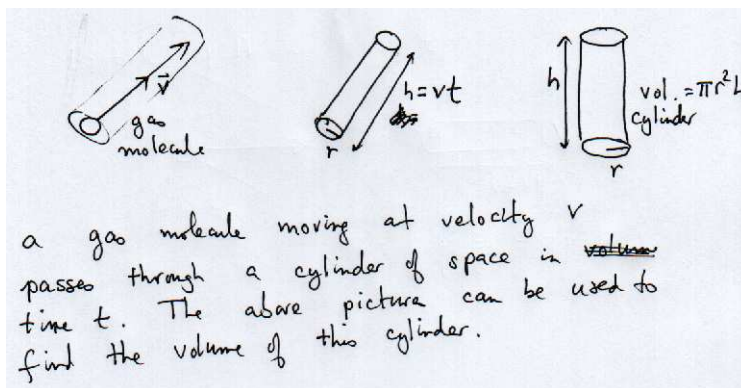 v
gas
molecule
h = vt
r
h
vol. = πr²h
cylinder
r
a gas molecule moving at velocity v
passes through a cylinder of space in
time t. The above picture can be used to
find the volume of this cylinder.